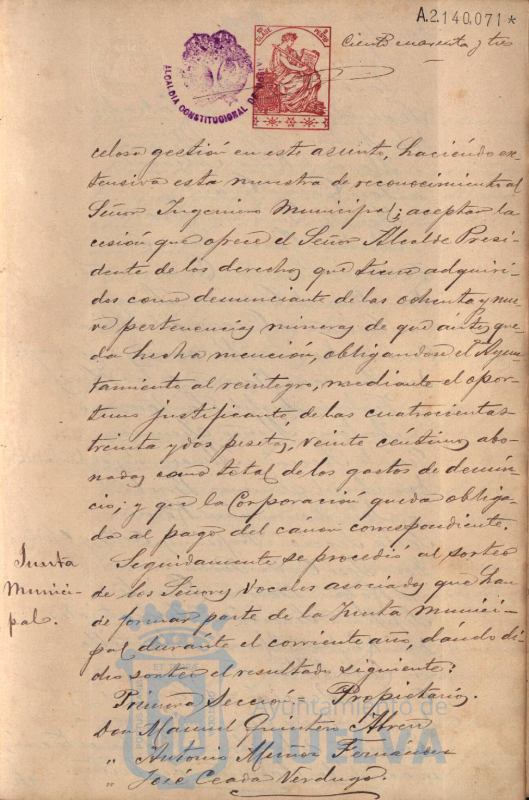 A.2.140.071*
Ciento cuarenta y tres
ALCALDIA CONSTITUCIONAL DE
celosa gestión en este asunto, haciéndo ex-
tensiva esta muestra de reconocimiento al
Señor Ingeniero Municipal; aceptar la
cesión que ofrece el Señor Alcalde Presi-
dente de los derechos que tiene adquiri-
dos como denunciante de las ochenta y nue-
ve pertenencias mineras de que ántes que-
da hecha mención, obligandose el Ayun-
tamiento al reintegro, mediante el opor-
tuno justificante, de las cuatrocientas
treinta y dos pesetas, veinte céntimos abo-
nadas como total de los gastos de denún-
cio; y que la Corporación queda obliga-
da al pago del cánon correspondiente.
Junta
Munici-
pal.
Seguidamente se procedió al sorteo
de los Señores Vocales asociados que han
de formar parte de la Junta Munici-
pal durante el corriente año, dándo di-
cho sorteo el resultado siguiente:
Primera Sección = Propietarios.
Don Manuel Quintero Abreu
" Antonio Muñoz Fernández
" José Ceada Verdugo.
Ayuntamiento de
HUELVA